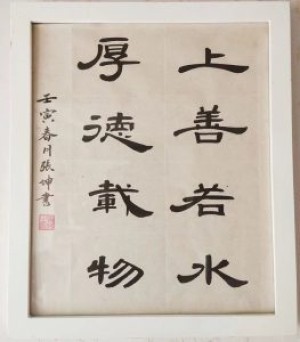 上善若水
厚德載物
壬寅春月張坤書